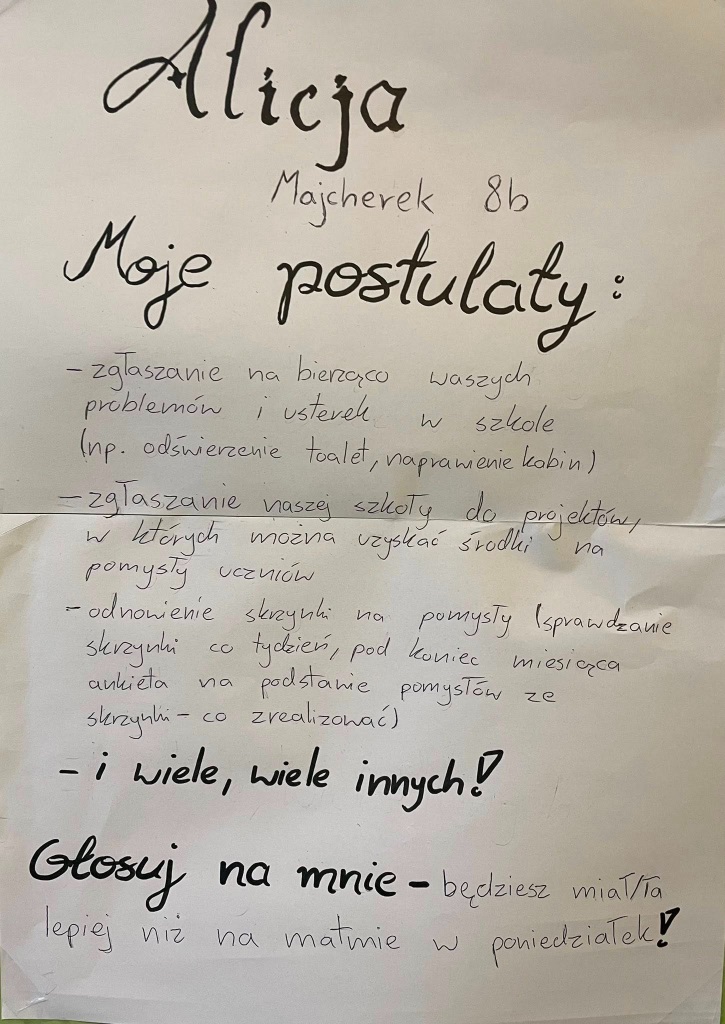 Alicja
Majcherek 8b
Moje postulaty:
- zgłaszanie na bierząco waszych
problemów i usterek w szkole
(np. odświerzenie toalet, naprawienie kabin)
- zgłaszanie naszej szkoły do projektów,
w których można uzyskać środki na
pomysły uczniów
- odnowienie skrzynki na pomysły (sprawdzanie
skrzynki co tydzień, pod koniec miesiąca
ankieta na podstawie pomysłów ze
skrzynki - co zrealizować)
- i wiele, wiele innych!
Głosuj na mnie - będziesz miał/ła
lepiej niż na matmie w poniedziałek!